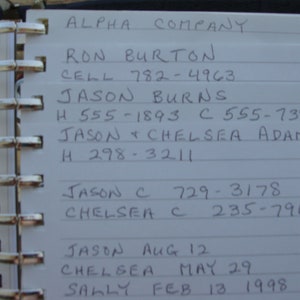 ALPHA COMPANY
RON BURTON
CELL 782-4963
JASON BURNS
H 555-1893 C 555-73
JASON + CHELSEA ADAM
H 298-3211
JASON C 729-3178
CHELSEA C 235-796
JASON AUG 12
CHELSEA MAY 29
SALLY FEB 13 1998